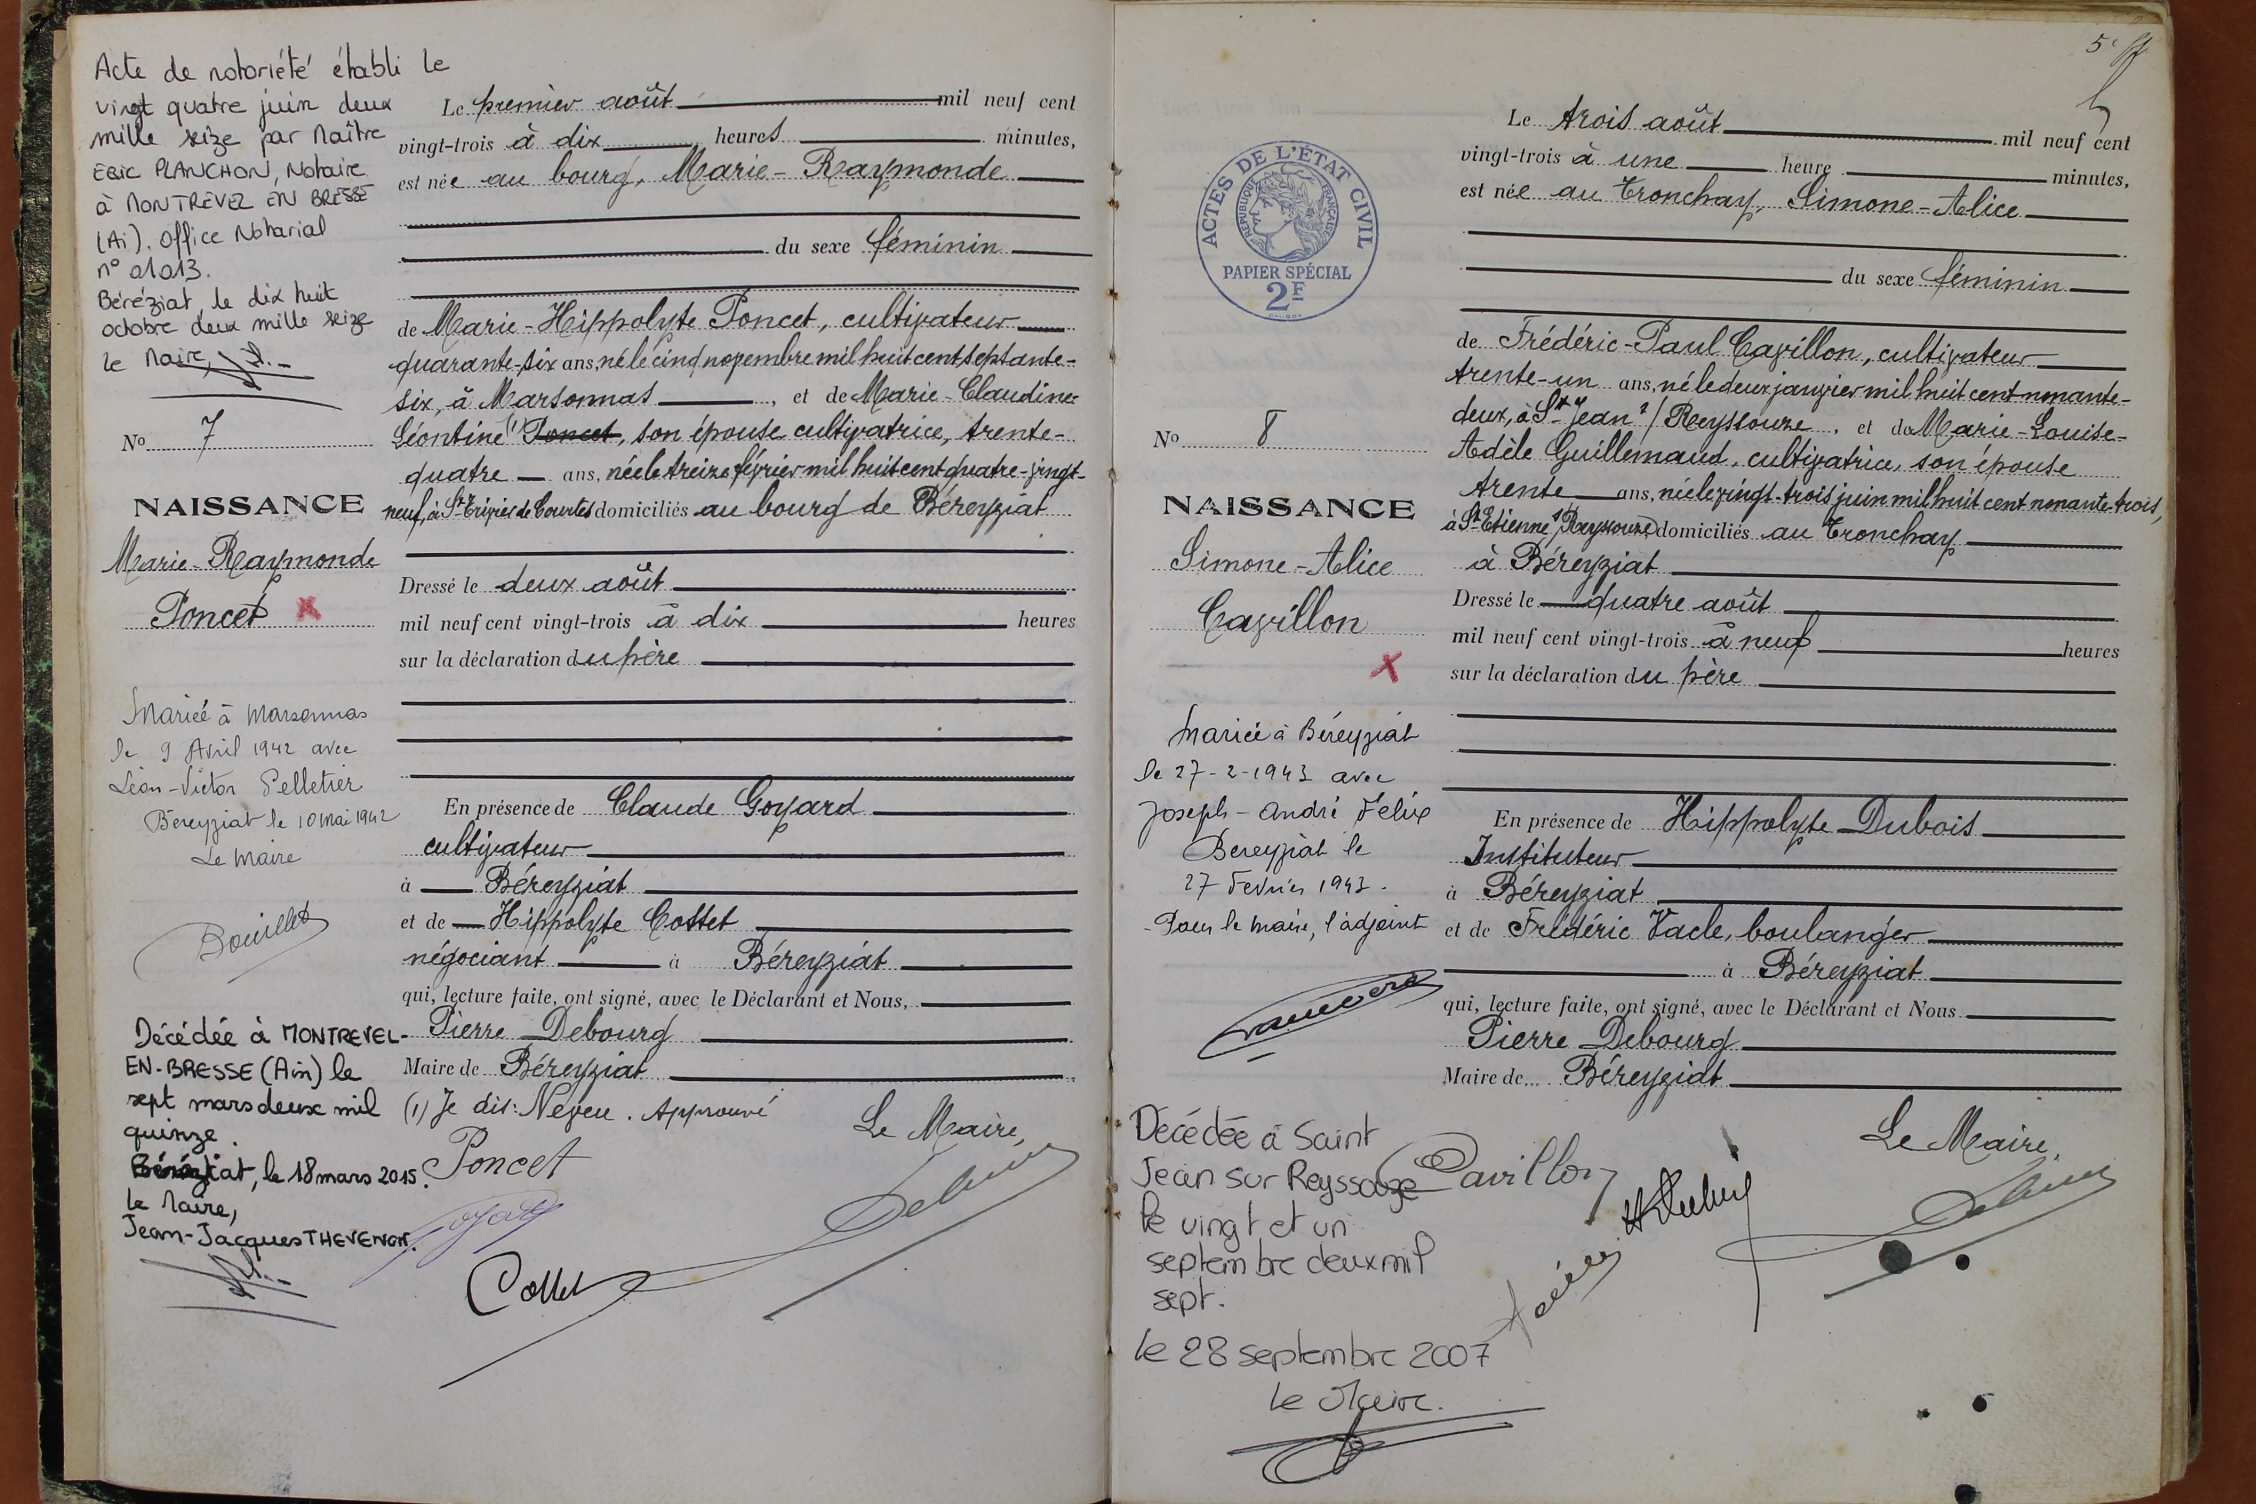 Acte de notoriété établi le
vingt quatre juin deux
mille seize par Maître
ERIC PLANCHON, Notaire
à MONTREVEL EN BRESSE
(Ai). Office Notarial
n° 01013.
Béréziat, le dix huit
octobre deux mille seize
le Maire,
No 7
NAISSANCE
Marie-Raymonde
Poncet
Mariée à Marsonnas
le 9 Avril 1942 avec
Léon-Victor Pelletier
Béreyziat le 10 mai 1942
Le Maire
Bouillet
Décédée à MONTREVEL-
EN-BRESSE (Ain) le
sept mars deux mil
quinze.
Béréziat, le 18 mars 2015.
Le Maire,
Jean-Jacques THEVENON.
Le premier août mil neuf cent
vingt-trois à dix heures minutes,
est née au bourg, Marie-Raymonde
du sexe féminin
de Marie-Hippolyte Poncet, cultivateur
quarante-six ans, né le cinq novembre mil huit cent septante-
six, à Marsonnas, et de Marie-Claudine-
Léontine (1) Poncet, son épouse cultivatrice, trente-
quatre ans, née le treize février mil huit cent quatre-vingt-
neuf, à St Trivier de Courtes domiciliés au bourg de Béreyziat
Dressé le deux août
mil neuf cent vingt-trois à dix heures
sur la déclaration du père
En présence de Claude Goyard
cultivateur
à Béreyziat
et de Hippolyte Cottet
négociant à Béreyziat
qui, lecture faite, ont signé, avec le Déclarant et Nous,
Pierre Debourg
Maire de Béreyziat
(1) Je dis: Neveu. Approuvé
Le Maire,
Poncet
Goyard
Cottet
Debourg
5e
ACTES DE L'ÉTAT CIVIL
RÉPUBLIQUE FRANÇAISE
PAPIER SPÉCIAL
2F
No 8
NAISSANCE
Simone-Alice
Cavillon
Mariée à Béreyziat
le 27-2-1943 avec
Joseph-André Félix
Bereyziat le
27 Fevrier 1943.
Pour le maire, l'adjoint
Décédée à Saint
Jean sur Reyssouze
le vingt et un
septembre deux mil
sept.
le 28 septembre 2007
Le Maire.
Le trois août mil neuf cent
vingt-trois à une heure minutes,
est née au Tronchay, Simone-Alice
du sexe féminin
de Frédéric-Paul Cavillon, cultivateur
trente-un ans, né le deux janvier mil huit cent nonante-
deux, à St Jean s/ Reyssouze, et de Marie-Louise-
Adèle Guillemaud, cultivatrice, son épouse
trente ans, née le vingt-trois juin mil huit cent nonante-trois,
à St Etienne s/ Reyssouze domiciliés au Tronchay
à Béreyziat
Dressé le quatre août
mil neuf cent vingt-trois à neuf heures
sur la déclaration du père
En présence de Hippolyte Dubois
Instituteur
à Béreyziat
et de Frédéric Vacle, boulanger
à Béreyziat
qui, lecture faite, ont signé, avec le Déclarant et Nous
Pierre Debourg
Maire de Béreyziat
Le Maire,
Cavillon
H Dubois
Debourg